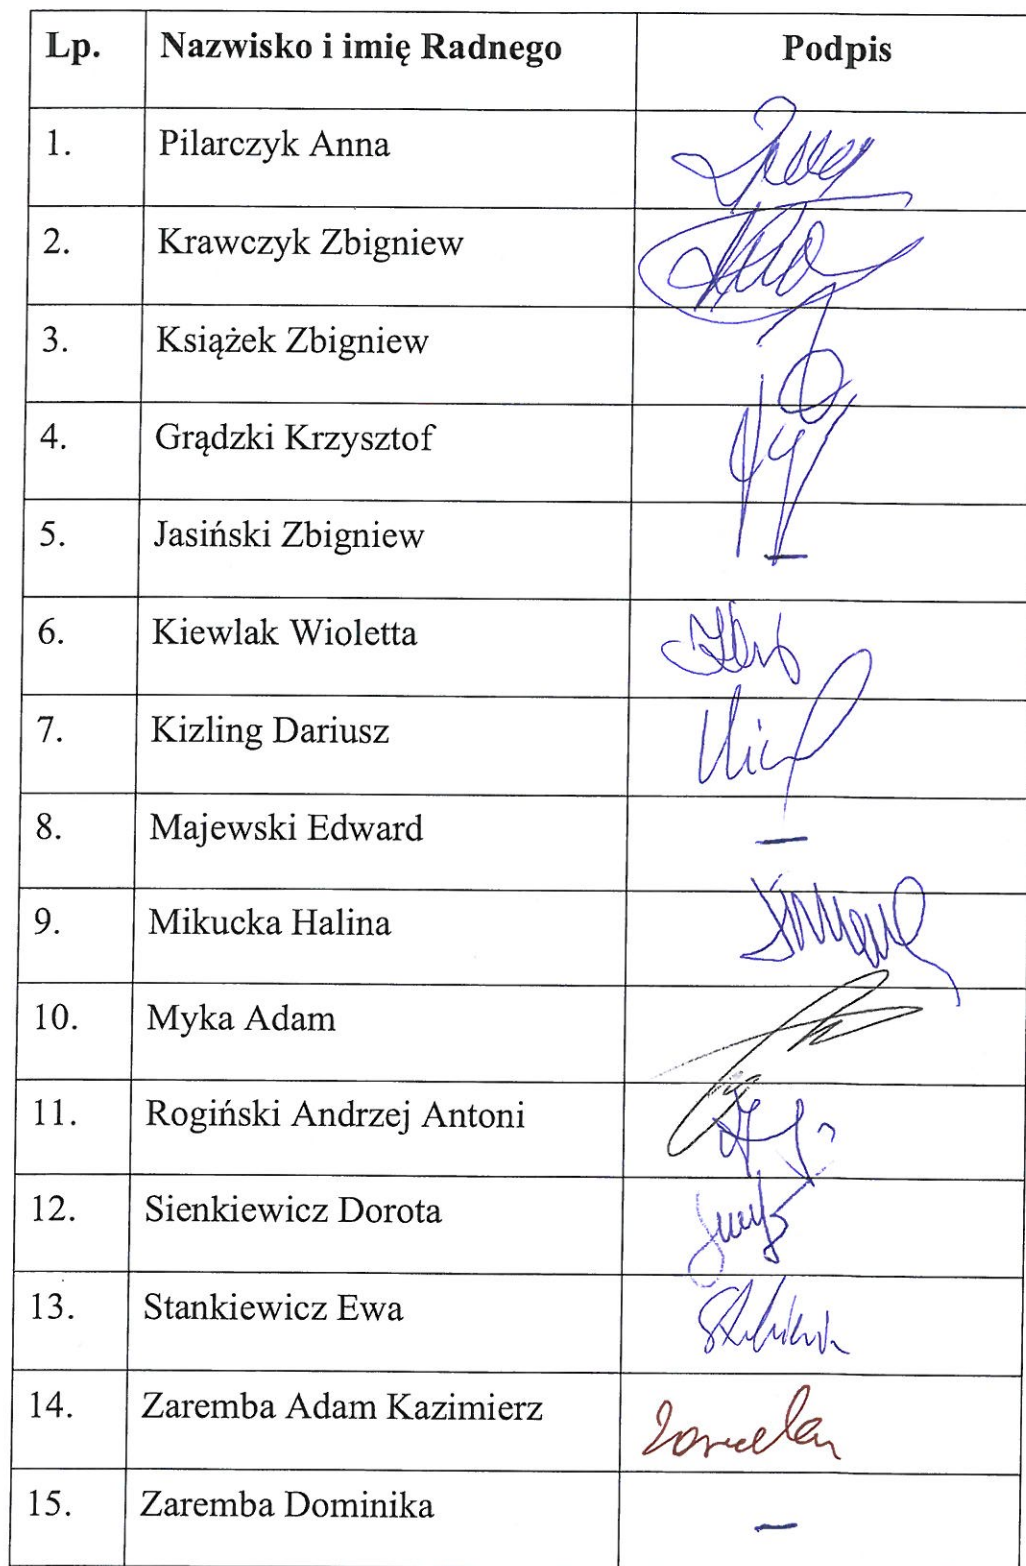 Lp. Nazwisko i imię Radnego Podpis
1. Pilarczyk Anna
2. Krawczyk Zbigniew
3. Książek Zbigniew
4. Grądzki Krzysztof
5. Jasiński Zbigniew —
6. Kiewlak Wioletta
7. Kizling Dariusz
8. Majewski Edward —
9. Mikucka Halina
10. Myka Adam
11. Rogiński Andrzej Antoni
12. Sienkiewicz Dorota
13. Stankiewicz Ewa
14. Zaremba Adam Kazimierz
15. Zaremba Dominika —